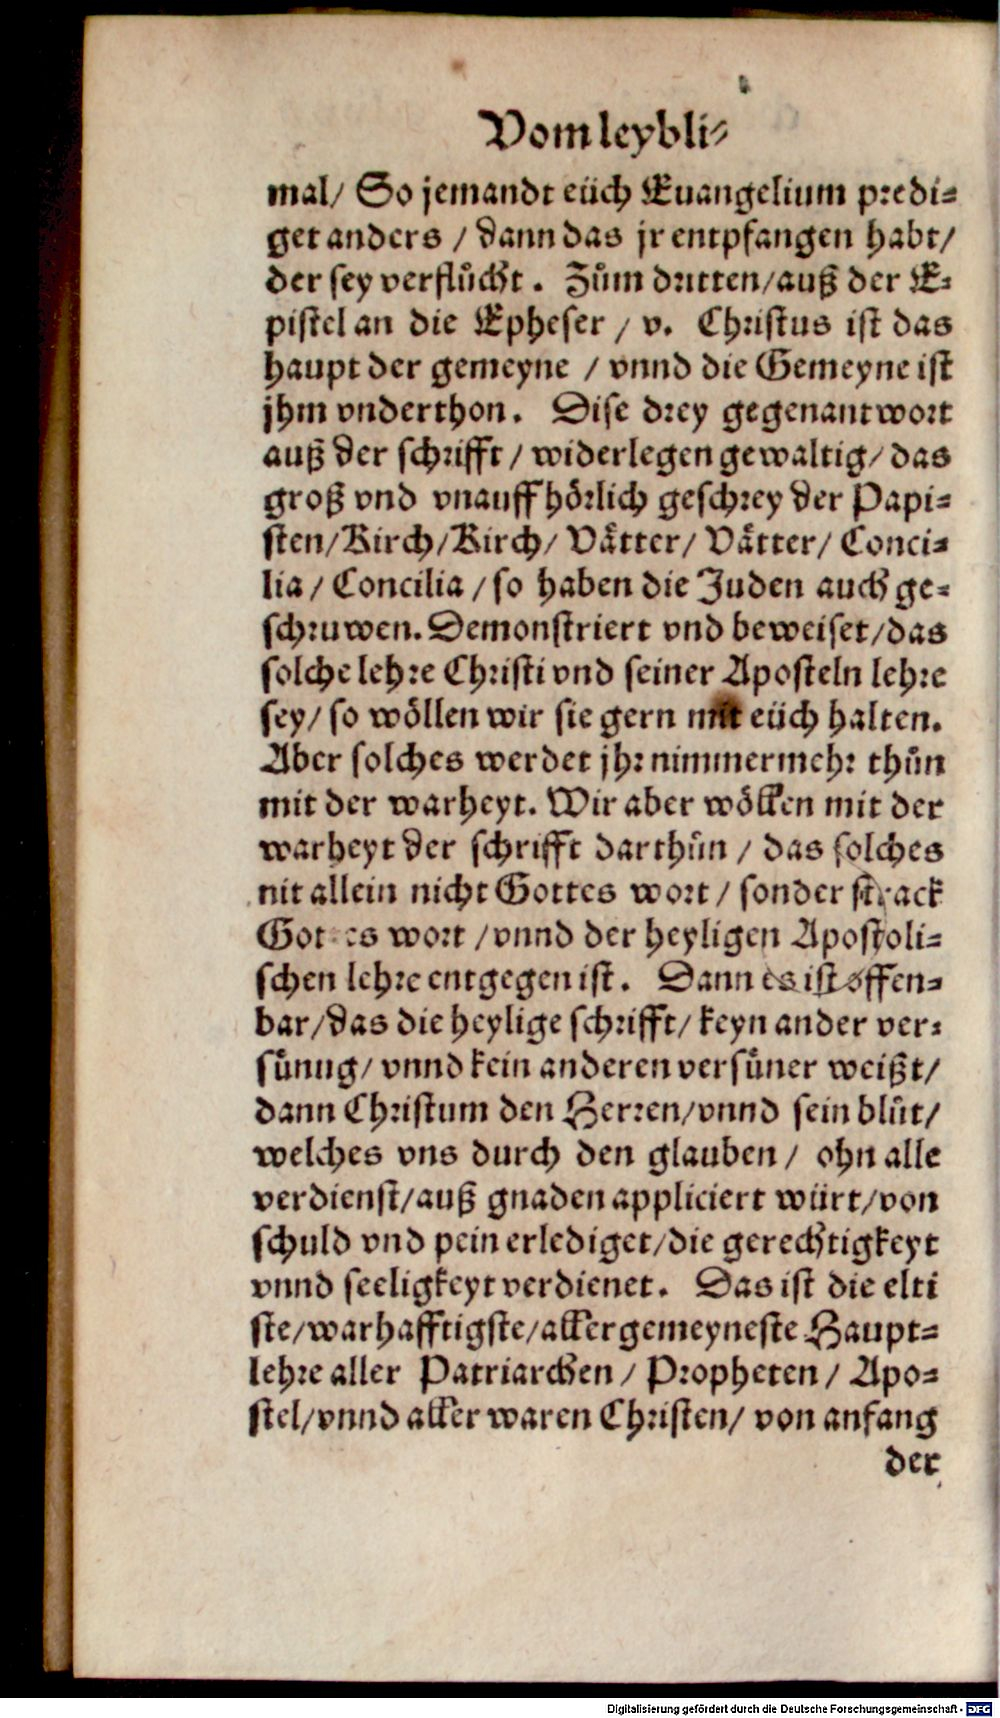 Vom leybli⸗
mal/ So jemandt eüch Euangelium predi⸗
get anders / dann das jr entpfangen habt/
der sey verflůcht. Zům dritten/auß der E⸗
pistel an die Epheser / v. Christus ist das
haupt der gemeyne / vnnd die Gemeyne ist
jhm vnderthon. Dise drey gegenantwort
auß der schrifft/ widerlegen gewaltig/ das
groß vnd vnauffhörlich geschrey der Papi⸗
sten/Kirch/Kirch/ Vätter/ Vätter/ Conci⸗
lia / Concilia / so haben die Juden auch ge⸗
schruwen. Demonstriert vnd beweiset/das
solche lehre Christi vnd seiner Aposteln lehre
sey/ so wöllen wir sie gern mit eüch halten.
Aber solches werdet jhr nimmermehr thůn
mit der warheyt. Wir aber wöllen mit der
warheyt der schrifft darthůn / das solches
nit allein nicht Gottes wort / sonder strack
Gottes wort /vnnd der heyligen Apostoli⸗
schen lehre entgegen ist. Dann es ist offen⸗
bar/das die heylige schrifft/ keyn ander ver⸗
sůnug/ vnnd kein anderen versůner weißt/
dann Christum den Herren/vnnd sein blůt/
welches vns durch den glauben / ohn alle
verdienst/auß gnaden appliciert würt/von
schuld vnd pein erlediget/die gerechtigkeyt
vnnd seeligkeyt verdienet. Das ist die elti
ste/warhafftigste/allergemeyneste Haupt⸗
lehre aller Patriarchen / Propheten / Apo⸗
stel/vnnd aller waren Christen/ von anfang
der
Digitalisierung gefördert durch die Deutsche Forschungsgemeinschaft - DFG